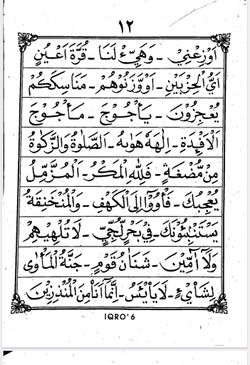 ١٢
اَوْزِعْنِيْ - وَهَيِّئْ لَنَا - قُرَّةَ اَعْيُنٍ
اَيُّ الْحِزْبَيْنِ - اَوْوَزَنُوْهُمْ - مَنَاسِكَكُمْ
يُعْجِزُوْنَ - يَأْجُوْجَ - مَأْجُوْجَ
الْاَفْئِدَةِ - اِلٰهَهُ هَوٰىهُ - الصَّلٰوةَ وَالزَّكٰوةَ
مِنْ مُضْغَةٍ - فَلِلّٰهِ الْمَكْرُ - الْمُزَّمِّلُ
يُعْجِبُكَ - فَأْوُوْا اِلَى الْكَهْفِ - وَالْمُنْخَنِقَةُ
يَسْتَنْبِئُوْنَكَ - فِيْ بَحْرٍ لُجِّيٍّ - لَا تُلْهِيْهِمْ
وَلَا آمِّيْنَ - شَنَاٰنُ قَوْمٍ - جَنَّةُ الْمَأْوٰى
لِشَايْءٍ - لَا يَايْئَسُ - اِنَّمَا اَنَا مِنَ الْمُنْذِرِيْنَ
IQRO'6